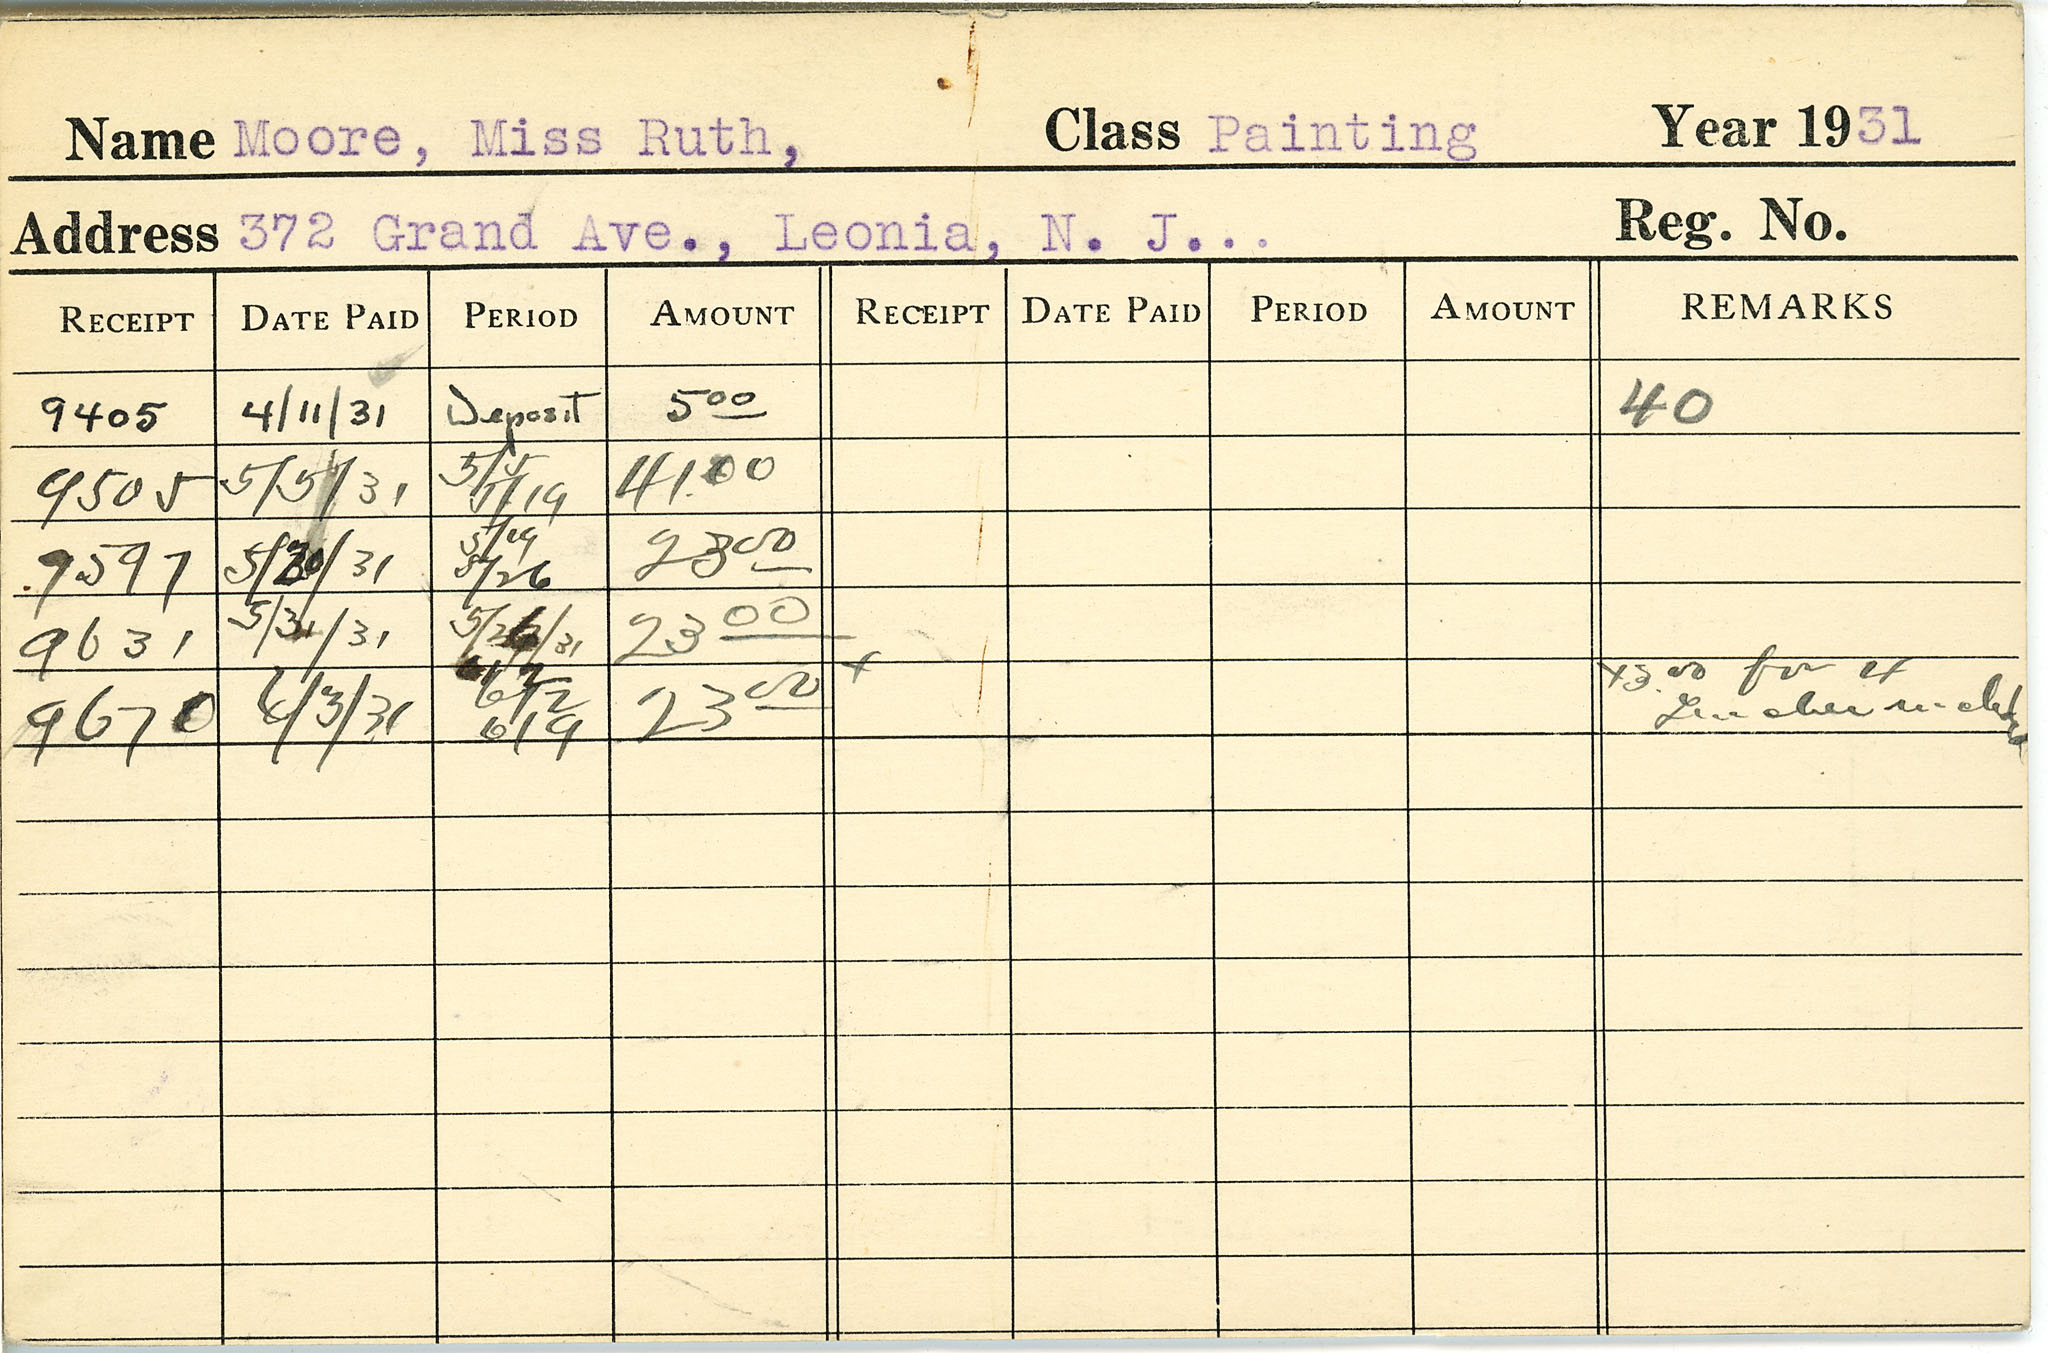 Name Moore, Miss Ruth, Class Painting Year 1931
Address 372 Grand Ave., Leonia, N. J... Reg. No.
RECEIPT DATE PAID PERIOD AMOUNT RECEIPT DATE PAID PERIOD AMOUNT REMARKS
9405 4/11/31 Deposit 5 00 40
9505 5/5/31 5/5 41.00
5/19
9597 5/20/31 5/19 23 00
5/26
9631 5/31/31 5/26/31 23 00
6/2
9670 6/3/31 6/2 23 00 + +3.00 for 4
6/9 included